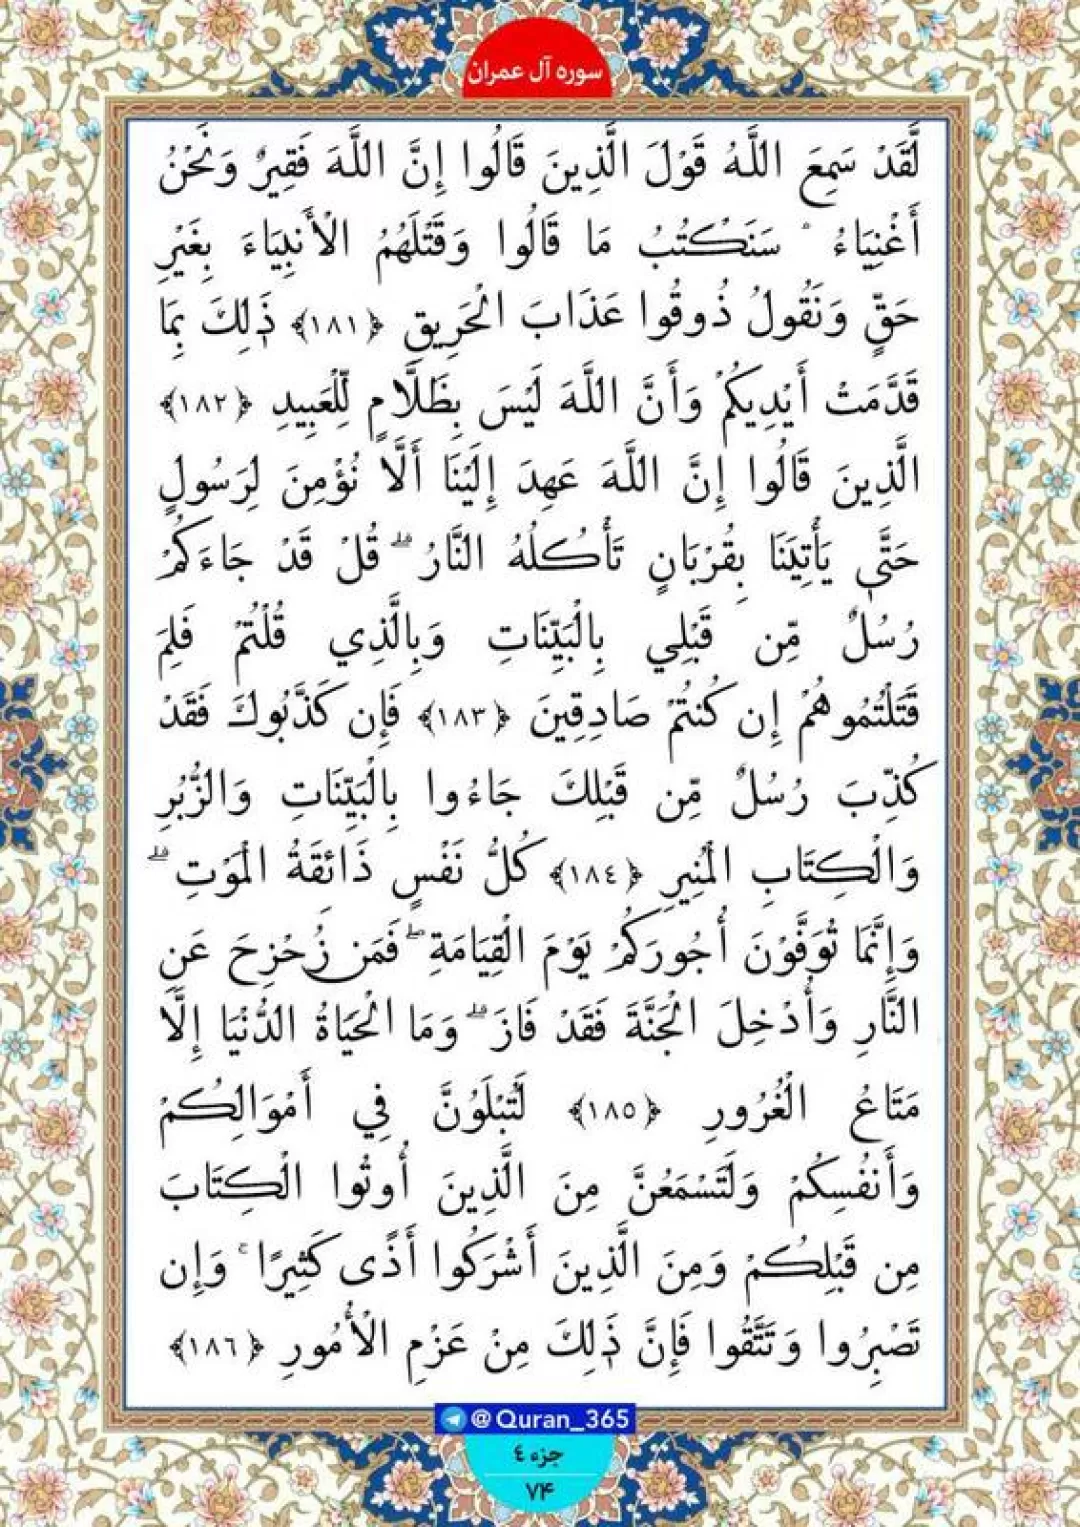 سوره آل عمران
لَّقَدْ سَمِعَ اللَّهُ قَوْلَ الَّذِينَ قَالُوا إِنَّ اللَّهَ فَقِيرٌ وَنَحْنُ
أَغْنِيَاءُ ۘ سَنَكْتُبُ مَا قَالُوا وَقَتْلَهُمُ الْأَنبِيَاءَ بِغَيْرِ
حَقٍّ وَنَقُولُ ذُوقُوا عَذَابَ الْحَرِيقِ ﴿١٨١﴾ ذَٰلِكَ بِمَا
قَدَّمَتْ أَيْدِيكُمْ وَأَنَّ اللَّهَ لَيْسَ بِظَلَّامٍ لِّلْعَبِيدِ ﴿١٨٢﴾
الَّذِينَ قَالُوا إِنَّ اللَّهَ عَهِدَ إِلَيْنَا أَلَّا نُؤْمِنَ لِرَسُولٍ
حَتَّىٰ يَأْتِيَنَا بِقُرْبَانٍ تَأْكُلُهُ النَّارُ ۗ قُلْ قَدْ جَاءَكُمْ
رُسُلٌ مِّن قَبْلِي بِالْبَيِّنَاتِ وَبِالَّذِي قُلْتُمْ فَلِمَ
قَتَلْتُمُوهُمْ إِن كُنتُمْ صَادِقِينَ ﴿١٨٣﴾ فَإِن كَذَّبُوكَ فَقَدْ
كُذِّبَ رُسُلٌ مِّن قَبْلِكَ جَاءُوا بِالْبَيِّنَاتِ وَالزُّبُرِ
وَالْكِتَابِ الْمُنِيرِ ﴿١٨٤﴾ كُلُّ نَفْسٍ ذَائِقَةُ الْمَوْتِ ۗ
وَإِنَّمَا تُوَفَّوْنَ أُجُورَكُمْ يَوْمَ الْقِيَامَةِ ۖ فَمَن زُحْزِحَ عَنِ
النَّارِ وَأُدْخِلَ الْجَنَّةَ فَقَدْ فَازَ ۗ وَمَا الْحَيَاةُ الدُّنْيَا إِلَّا
مَتَاعُ الْغُرُورِ ﴿١٨٥﴾ لَتُبْلَوُنَّ فِي أَمْوَالِكُمْ
وَأَنفُسِكُمْ وَلَتَسْمَعُنَّ مِنَ الَّذِينَ أُوتُوا الْكِتَابَ
مِن قَبْلِكُمْ وَمِنَ الَّذِينَ أَشْرَكُوا أَذًى كَثِيرًا ۚ وَإِن
تَصْبِرُوا وَتَتَّقُوا فَإِنَّ ذَٰلِكَ مِنْ عَزْمِ الْأُمُورِ ﴿١٨٦﴾
@Quran_365
جزء ٤
٧۴